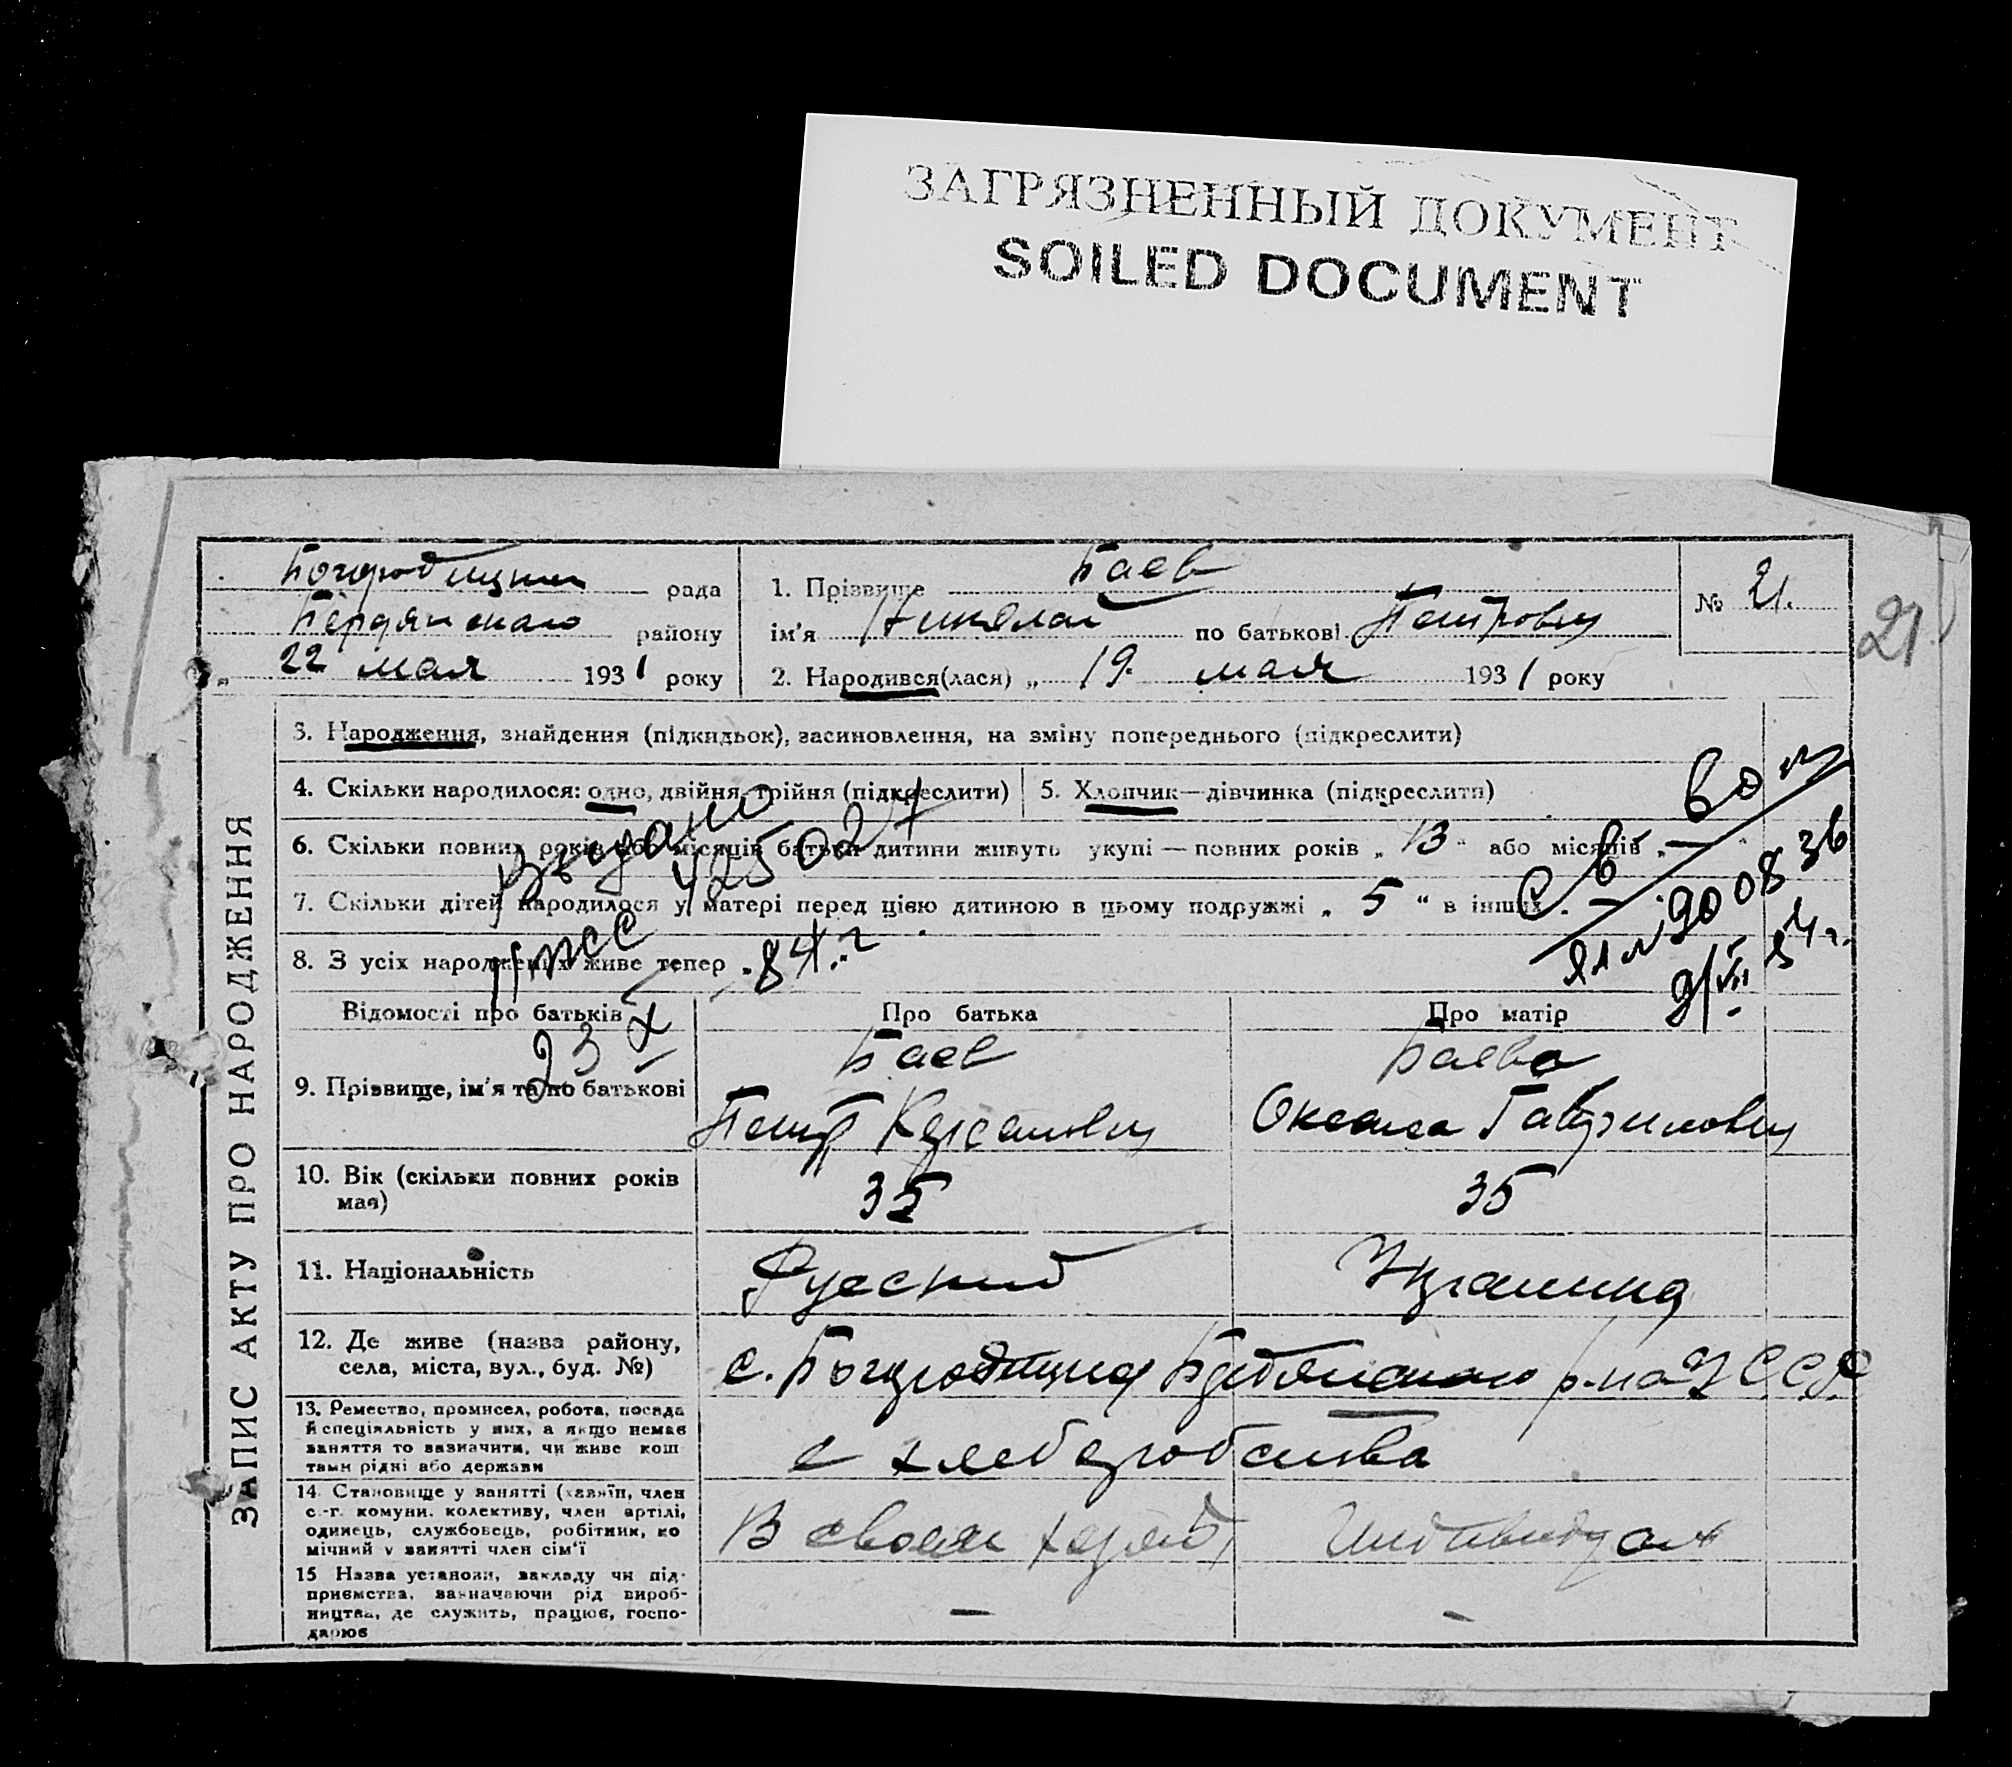 ЗАГРЯЗНЕННЫЙ ДОКУМЕНТ
SOILED DOCUMENT
рада
Бердянского району
22 мая 1931 року
1. Прізвище Баев
ім'я Николай по батькові Петрович
2. Народився(лася) „ 19 мая 1931 року
№ 21.
21
ЗАПИС АКТУ ПРО НАРОДЖЕННЯ
3. Народження, знайдення (підкидьок), засиновлення, на зміну попереднього (підкреслити)
4. Скільки народилося: одно, двійня, трійня (підкреслити)
5. Хлопчик—дівчинка (підкреслити)
6. Скільки повних років або місяців батьки дитини живуть укупі — повних років „ 13 " або місяців „ — "
7. Скільки дітей народилося у матері перед цією дитиною в цьому подружжі „ 5 " в інших „ —
8. З усіх народжених живе тепер
Выдано
425027
84. г
23 X
9/VII 54 г.
Відомості про батьків
Про батька
Про матір
9. Прізвище, ім'я та по батькові
Баев
Петр
Баева
Оксана Гавриловна
10. Вік (скільки повних років має)
35
35
11. Національність
Русский
Украинка
12. Де живе (назва району, села, міста, вул., буд. №)
р-на УССР
13. Ремество, промисел, робота, посада й спеціяльність у них, а якщо немає заняття то зазначити, чи живе коштами рідні або держави
с хлеборобства
14. Становище у занятті (хазяїн, член с.-г. комуни, колективу, член артілі, одинець, службовець, робітник, помічний у занятті член сім'ї
В своем
15 Назва установи, закладу чи підприємства, зазначаючи рід виробництва, де служить, працює, господарює
—
—